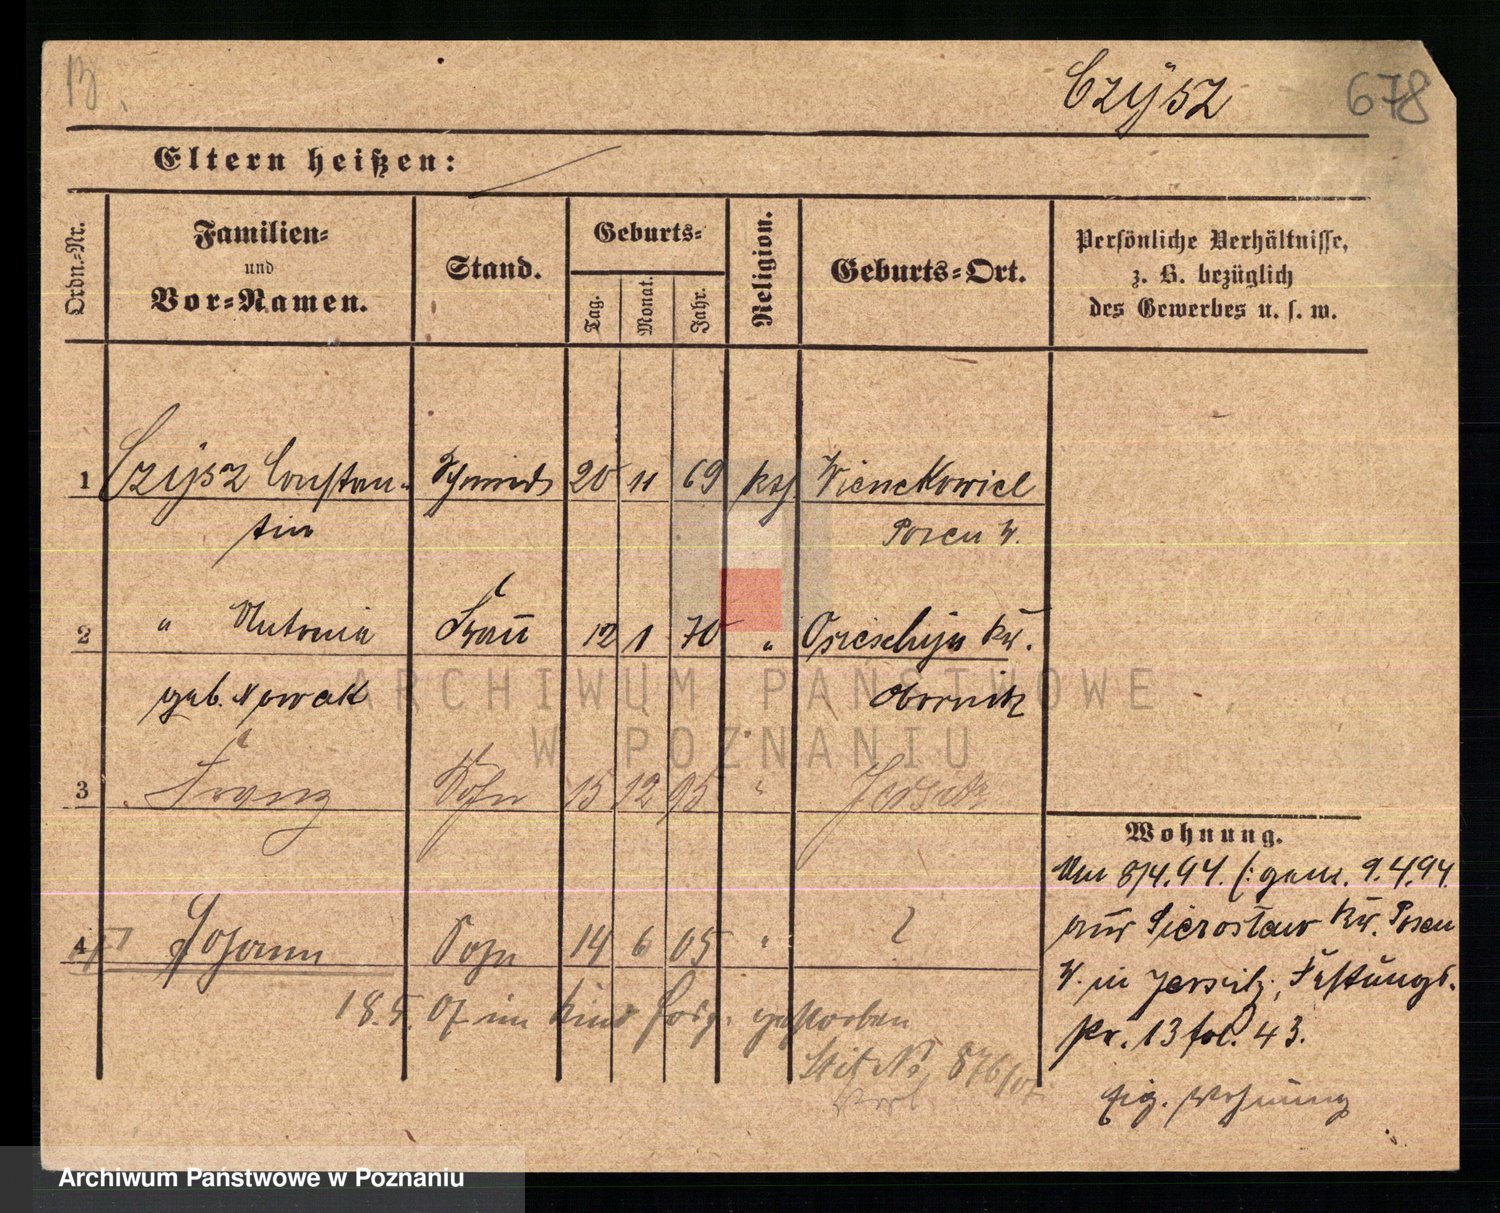 Czÿsz 678
Eltern heißen:
Ordn.-Nr.
Familien-
und
Vor-Namen.
Stand.
Geburts-
Tag.
Monat.
Jahr.
Religion.
Geburts-Ort.
Persönliche Verhältnisse,
z. B. bezüglich
des Gewerbes u. s. w.
1 Czÿsz Constan- Schmied 20 11 69 kth Wienckowice
tin Posen W.
2 " Antonia Frau 12 1 70 " Kr.
geb. Nowak Obornik
3 Franz Sohn 15 12 95 " Jersitz
4 Johann Sohn 14 6 05 " ?
18.5.07 im gestorben
876/07
Wohnung.
Am 8/4.94. (: gem. 9.4.94.
aus Sieroslaw Kr. Posen
W. in Jersitz, Festungs.
13 fol. 43.
Wohnung
ARCHIWUM PAŃSTWOWE
W POZNANIU
Archiwum Państwowe w Poznaniu